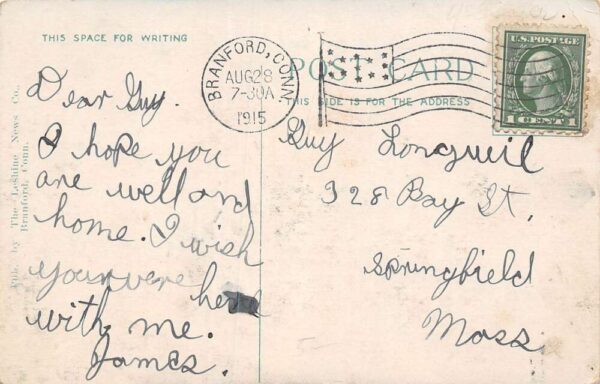 THIS SPACE FOR WRITING
Dear Guy.
I hope you
are well and
home. I wish
your were here
with me.
James.
Pub. by The Leshine News Co.,
Branford, Conn.
BRANFORD, CONN.
AUG 28
7-30A
1915
POST CARD
THIS SIDE IS FOR THE ADDRESS
U.S. POSTAGE
1 CENT 1
Guy Longueil
328 Bay St.
Springfield
Mass